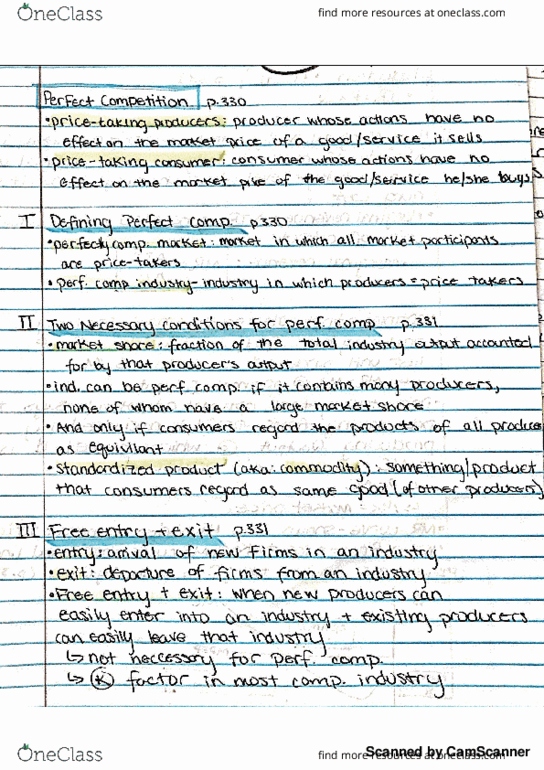 OneClass
find more resources at oneclass.com
Perfect Competition p.330
•price-taking producers: producer whose actions have no
effect on the market price of a good/service it sells
•price-taking consumer: consumer whose actions have no
effect on the market price of the good/service he/she buys
I Defining Perfect Comp. p330
•perfectly comp. market: market in which all market participants
are price-takers
•perf. comp industry- industry in which producers = price takers
II Two Necessary conditions for perf. comp p.331
•market share: fraction of the total industry output accounted
for by that producer's output
•ind. can be perf comp. if it contains many producers,
none of whom have a large market share
•And only if consumers regard the products of all produce
as equivilant
•standardized product (aka: commodity): something/product
that consumers regard as same good (of other producers)
III Free entry + exit p.331
•entry: arrival of new firms in an industry
•exit: departure of firms from an industry
•Free entry + exit: when new producers can
easily enter into an industry + existing producers
can easily leave that industry
↳ not neccessary for perf. comp.
↳ Ⓚ factor in most comp. industry
OneClass
find more resources at oneclass.com
Scanned by CamScanner